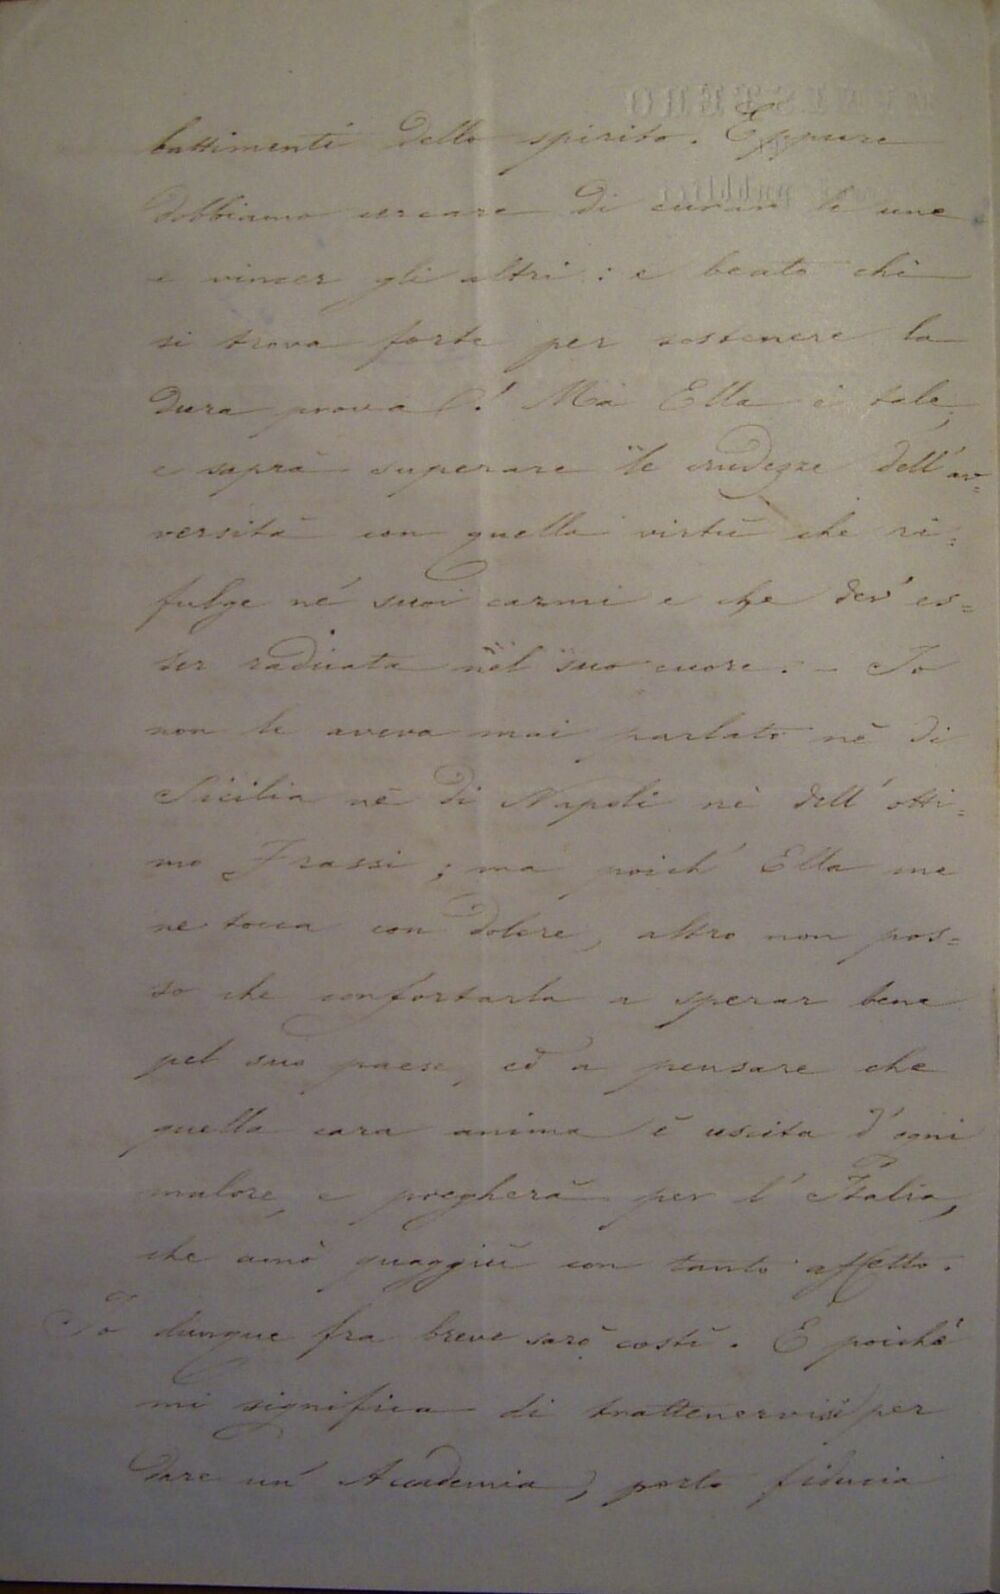 battimenti dello spirito. Eppure
dobbiamo cercare di curar le une
e vincer gli altri: e beato chi
si trova forte per sostenere la
dura prova! Ma Ella è tale,
e saprà superare le crudezze dell'av=
versità con quella virtù che ri=
fulge né suoi carmi e che dev'es=
ser radicata nel suo cuore. – Io
non le aveva mai parlato nè di
Sicilia nè di Napoli nè dell'otti=
mo Frassi; ma poich' Ella me
ne tocca con dolore, altro non pos=
so che confortarla a sperar bene
pel suo paese, ed a pensare che
quella cara anima è uscita d'ogni
malore, e pregherà per l'Italia,
che amò quaggiù con tanto affetto.
Io dunque fra breve sarò costì. E poichè
mi significa di trattenervisi per
dare un' Accademia, porto fiducia